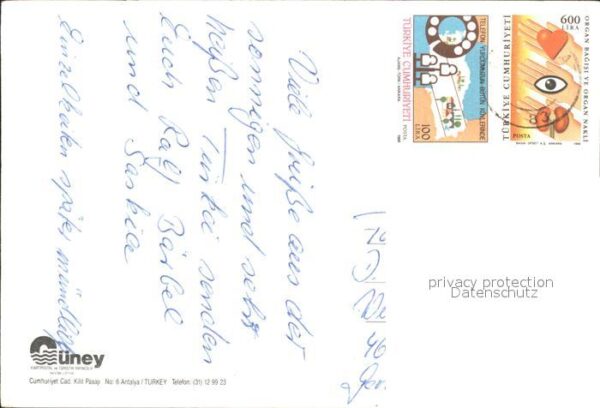 Viele Grüße aus der
sonnigen und sehr
heißen Türkei senden
Euch Ralf Bärbel
und Saskia
Einzelheiten später mündlich
TELEFON YURDUMUZUN BÜTÜN KÖYLERİNDE
TÜRKİYE CUMHURİYETİ
POSTA
100
LİRA
600
LİRA
ORGAN BAĞIŞI VE ORGAN NAKLİ
TÜRKİYE CUMHURİYETİ
POSTA
46
privacy protection
Datenschutz
Güney
KARTPOSTAL ve TURİSTİK YAYINCILIK
Cumhuriyet Cad. Kilit Pasajı No: 6 Antalya / TURKEY Telefon: (31) 12 99 23